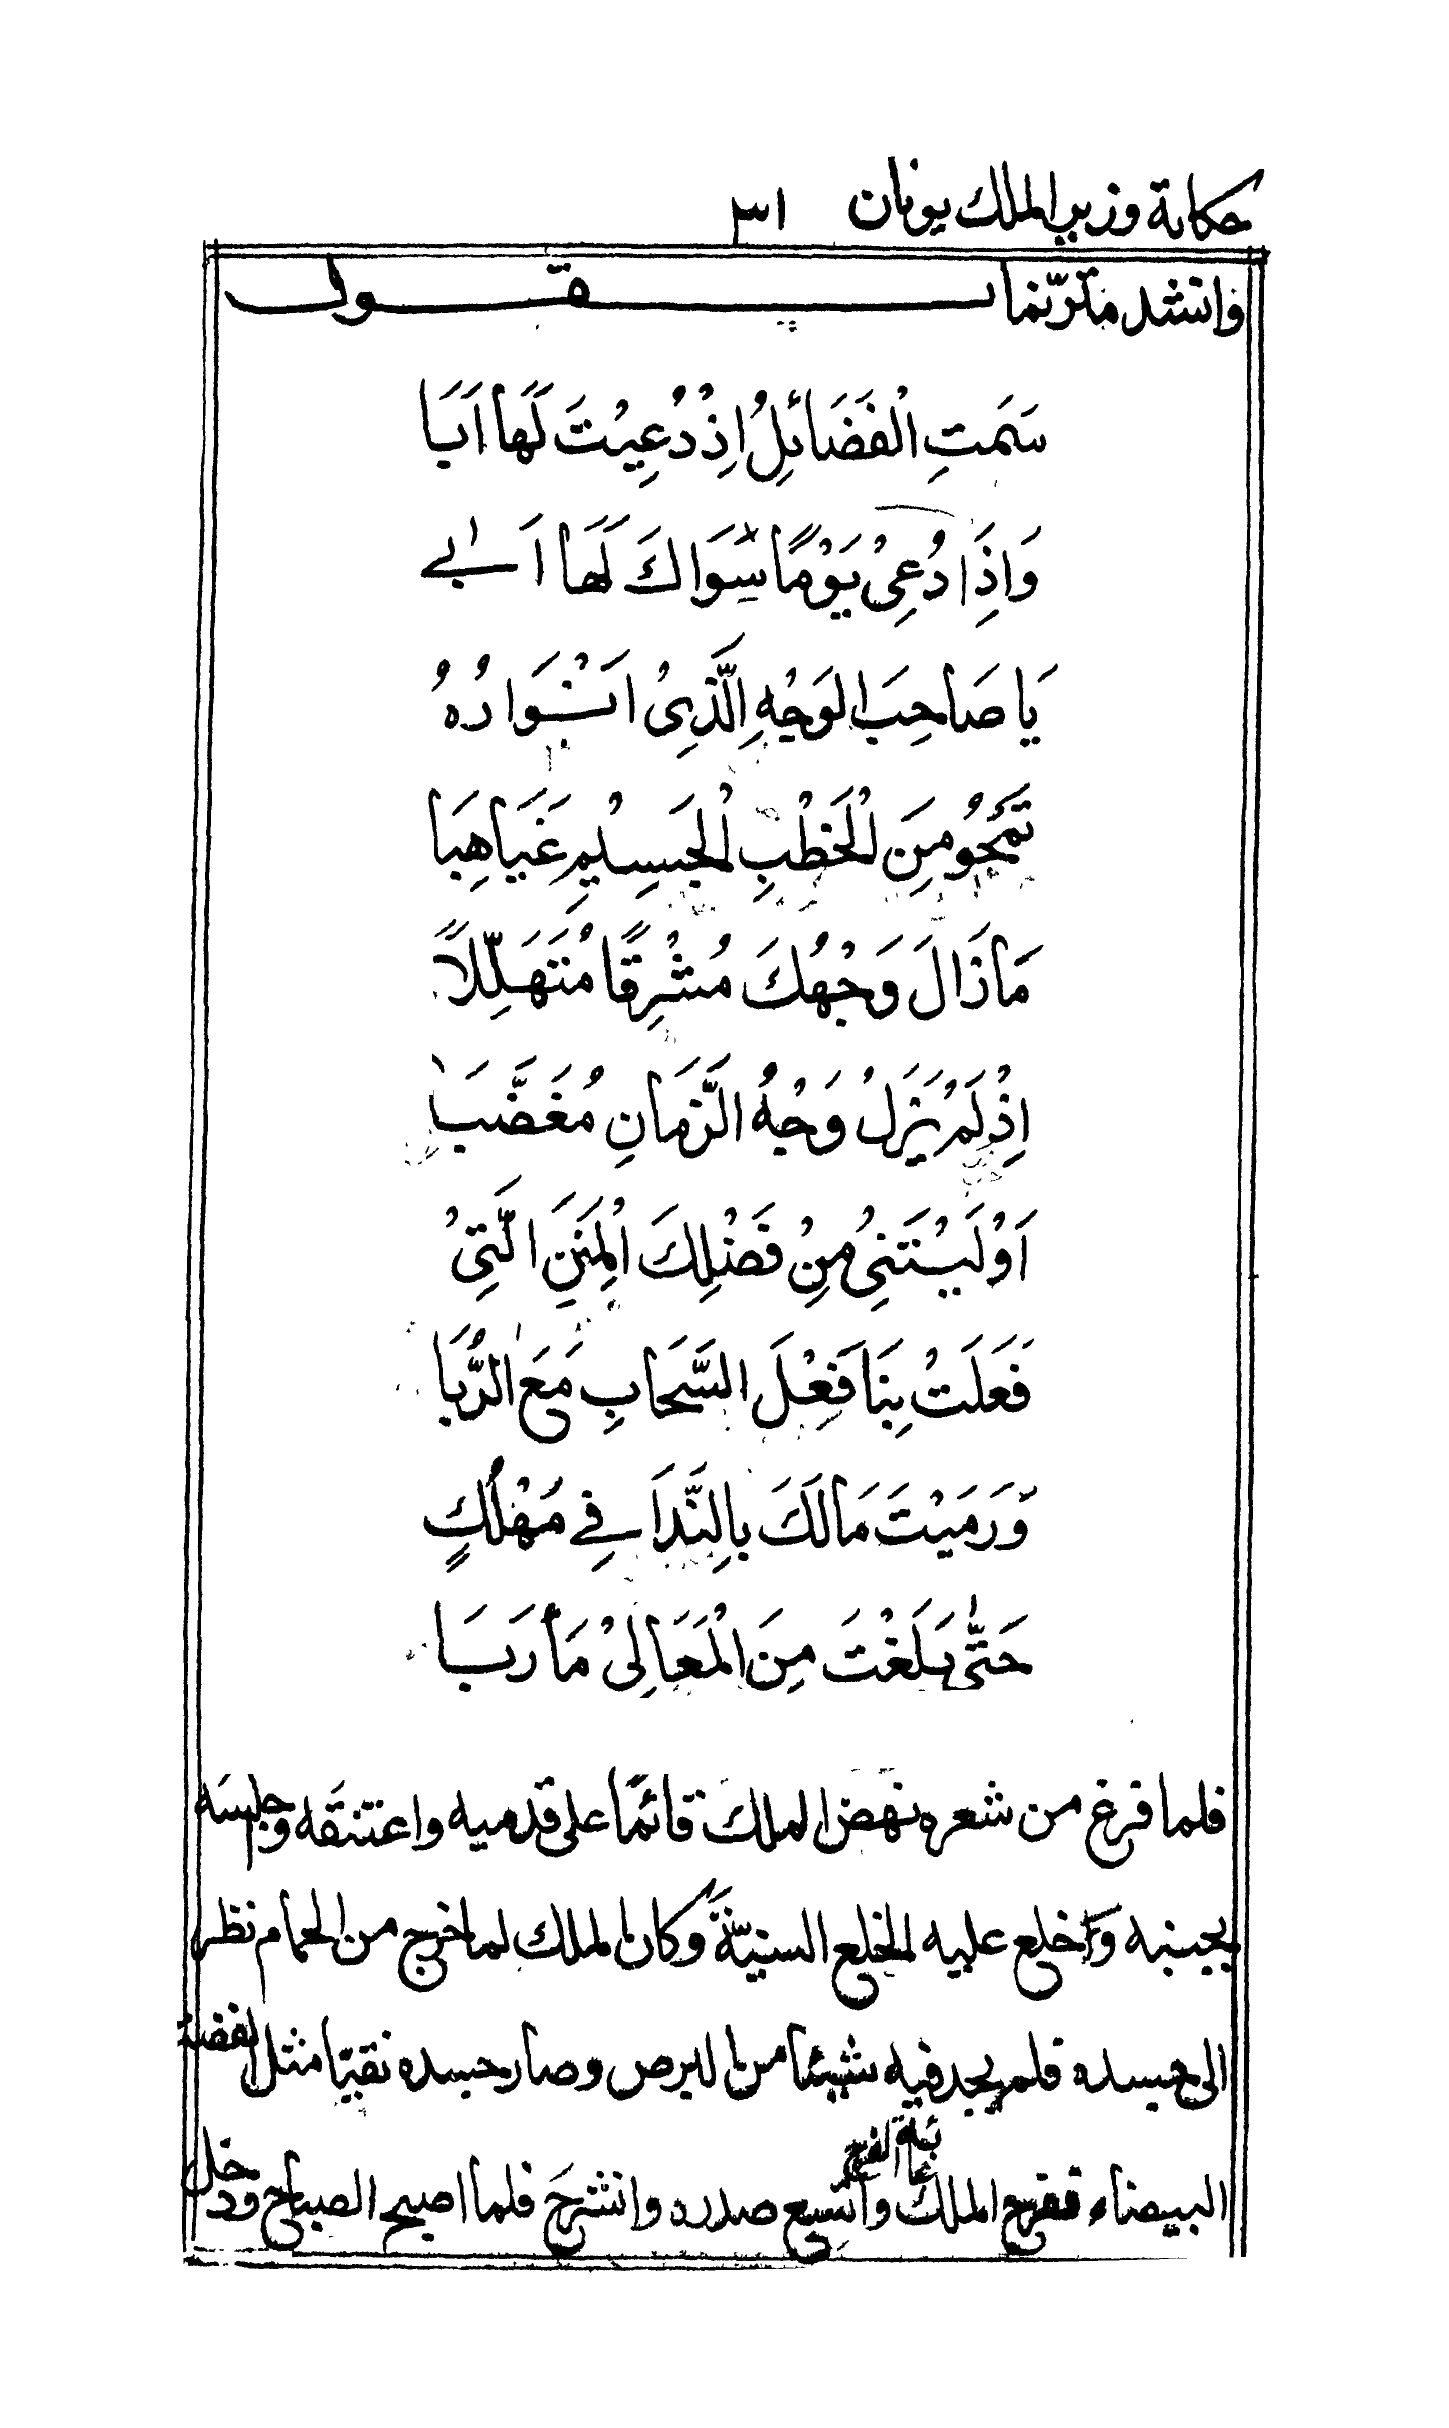 حكاية وزير الملك يونان ٣١
وانشد مترنّما يقول
سَمَتِ الْفَضَائِلُ اِذْ دُعِيْتَ لَهَا اَبَا
وَاِذَا دُعِىْ يَوْمًا سِوَاكَ لَهَا اَبٰے
يَا صَاحِبَ الوَجْهِ الَّذِىْ اَنْوَارُهُ
تَمْحُو مِنَ الْخَطْبِ الْجَسِيْمِ غَيَاهِبَا
مَا زَالَ وَجْهُكَ مُشْرِقًا مُتَهَلِّلًا
اِذْ لَمْ يَزَلْ وَجْهُ الزَّمَانِ مُغَضَّبَا
اَوْلَيْتَنِىْ مِنْ فَضْلِكَ الْمِنَنِ الَّتِىْ
فَعَلَتْ بِنَا فِعْلَ السَّحَابِ مَعَ الرُّبَا
وَرَمَيْتَ مَالَكَ بِالنَّدَا فِے مَهْلَكٍ
حَتّٰى بَلَغْتَ مِنَ الْمَعَالِىْ مَأْرَبَا
فلما فرغ من شعره نهض الملك قائمًا على قدميه واعتنقه وجلسه
بجنبه وَاَخلع عليه الخلع السنيّة وَكان الملك لما خرج من الحمام نظر
الى جسده فلم يجد فيه شيئًا من البرص وصار جسده نقيّا مثل الفضة
البيضاء ففرح الملك غاية الفرح واتسع صدره وانشرح فلما اصبح الصباح ودخل